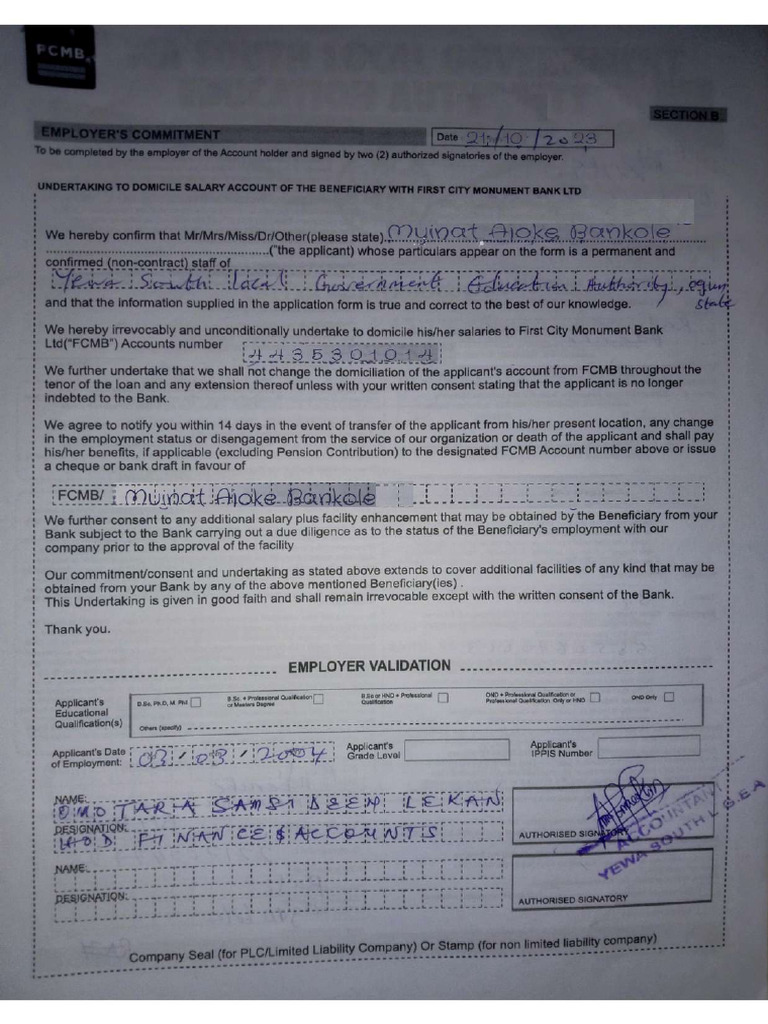 FCMB
SECTION B
EMPLOYER'S COMMITMENT
Date 21/10/2023
To be completed by the employer of the Account holder and signed by two (2) authorized signatories of the employer.
UNDERTAKING TO DOMICILE SALARY ACCOUNT OF THE BENEFICIARY WITH FIRST CITY MONUMENT BANK LTD
We hereby confirm that Mr/Mrs/Miss/Dr/Other(please state) Muinat Ajoke Bankole
("the applicant) whose particulars appear on the form is a permanent and
confirmed (non-contract) staff of
Yewa South Local Government Education Authority, Ogun
State
and that the information supplied in the application form is true and correct to the best of our knowledge.
We hereby irrevocably and unconditionally undertake to domicile his/her salaries to First City Monument Bank
Ltd("FCMB") Accounts number 4435301014
We further undertake that we shall not change the domiciliation of the applicant's account from FCMB throughout the
tenor of the loan and any extension thereof unless with your written consent stating that the applicant is no longer
indebted to the Bank.
We agree to notify you within 14 days in the event of transfer of the applicant from his/her present location, any change
in the employment status or disengagement from the service of our organization or death of the applicant and shall pay
his/her benefits, if applicable (excluding Pension Contribution) to the designated FCMB Account number above or issue
a cheque or bank draft in favour of
FCMB/ Muinat Ajoke Bankole
We further consent to any additional salary plus facility enhancement that may be obtained by the Beneficiary from your
Bank subject to the Bank carrying out a due diligence as to the status of the Beneficiary's employment with our
company prior to the approval of the facility
Our commitment/consent and undertaking as stated above extends to cover additional facilities of any kind that may be
obtained from your Bank by any of the above mentioned Beneficiary(ies) .
This Undertaking is given in good faith and shall remain irrevocable except with the written consent of the Bank.
Thank you.
EMPLOYER VALIDATION
Applicant's
Educational
Qualification(s)
B.Sc, Ph.D, M. Phil
B.Sc. + Professional Qualification
or Masters Degree
B.Sc or HND + Professional
Qualification
OND + Professional Qualification or
Professional Qualification Only or HND
OND Only
Others (specify)
Applicant's Date
of Employment: 03/03/2004
Applicant's
Grade Level
Applicant's
IPPIS Number
NAME: OMOTARA SAMSIDEEN LEKAN
DESIGNATION: HOD FINANCE & ACCOUNTS
AUTHORISED SIGNATORY
ACCOUNTANT
YEWA SOUTH L.G.E.A
NAME:
DESIGNATION:
AUTHORISED SIGNATORY
Company Seal (for PLC/Limited Liability Company) Or Stamp (for non limited liability company)